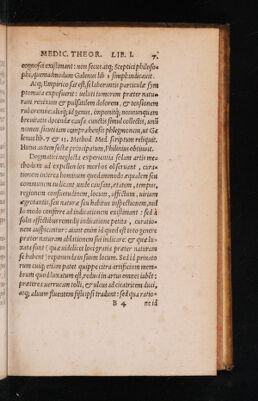 MEDIC. THEOR. LIB. I. 7.
cognosci existimant: non secus atq; Sceptici philoso-
phi, quemadmodum Galenus lib. simpl. indicavit.
Atq; Empirico sat est, si laborantis particulæ sym
ptomata exposuerit: veluti tumorem præter natu-
ram renixum & pulsatilem dolorem, & tensionem
ruborémue: aliaq; id genus, inopinti, nonnunquam
breuitatis docendæ causa cuncta simul collectim, uni
nomen sunt etiam comprehensis phlegmonen, ut Ga
lenus lib. 7 & 13. Method. Med. scriptum reliquit.
Huius autem sectæ principatum, Philinus obtinuit.
Dogmatici neglecta experientia solam artis me-
thodum ad expellendos morbos observant, cura-
tionem indentes homini quodammodo æqualem seu
communem iudicant unde causam, ætatem, tempus,
regionem consuetudinem, locum, affectum, uirium
ægrotantis, seu naturæ suæ habitus inspectionem, nul
lo modo conferre ad indicationem existimant: sed à
solis affectibus remedij indicatione petita, curatio-
nem auspicantur: aiunt enim id quod est toto genere
præter naturam ablationem sui indicare: & ex qui-
bus fuit (quæ uidelicet loci gratia præter naturam
se habent) reponenda in suum locum. Sed id priuato
rum cuiq; etiam patet quippe citra artificium mem-
brum quod luxatum est, reduci in artus conuenit iubet:
præterea uerrucam tolli, & ulcus ad cicatricem duci,
atq; aluum fluentem sisti ipsi tradunt: sed qua ratio-
B 4 ne id